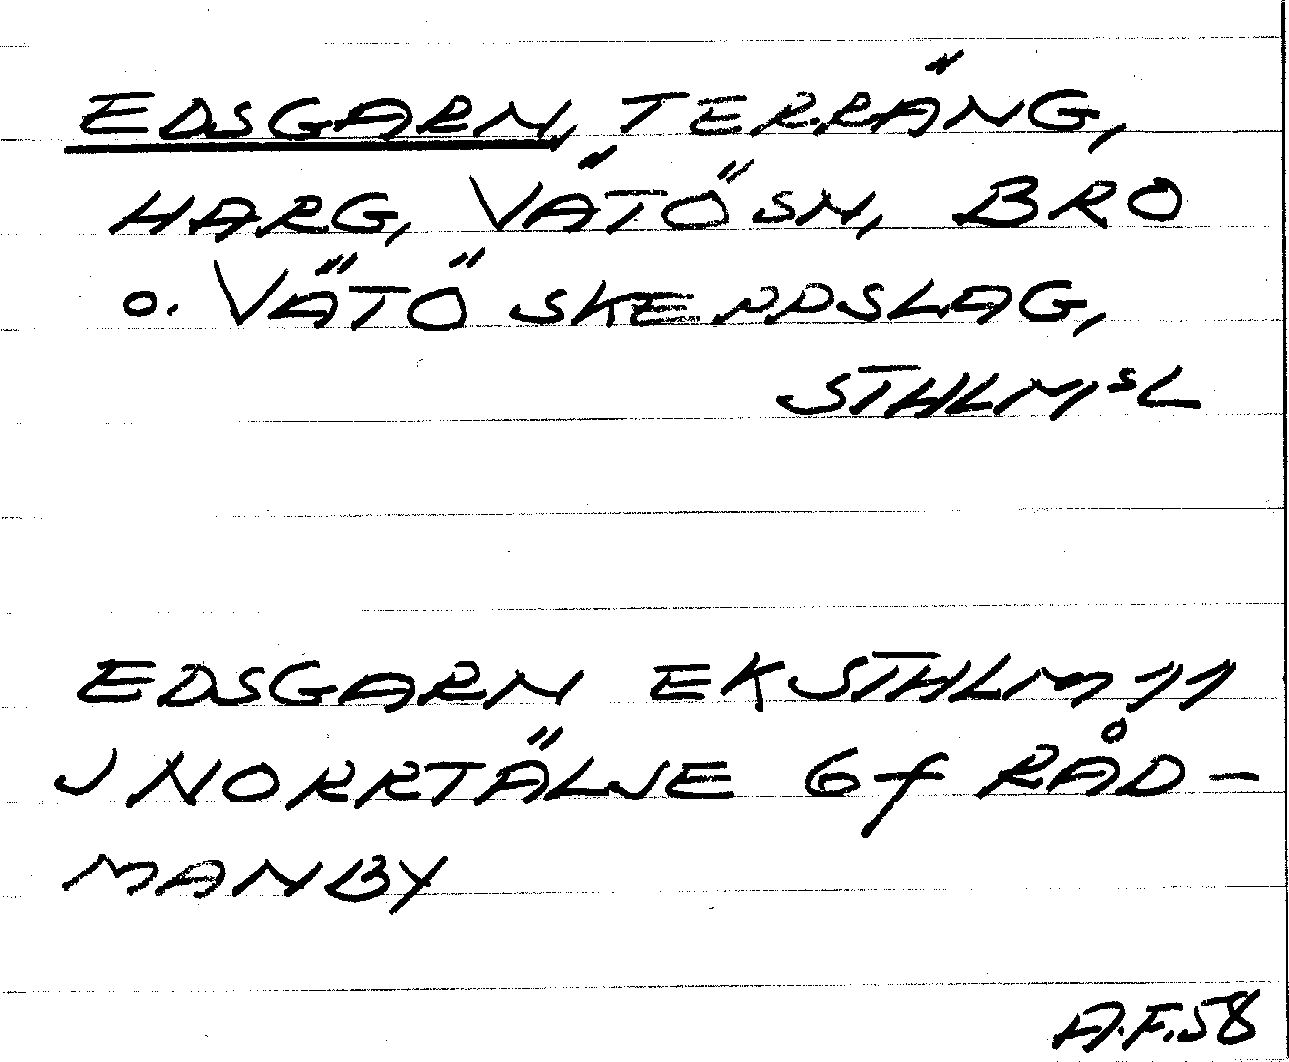 EDSGARN, TERRÄNG,
HARG, VÄTÖ SN, BRO
O. VÄTÖ SKEPPSLAG,
STHLMSL
EDSGARN EKSTHLM 11
J NORRTÄLJE 6f RÅD-
MANBY
A.F.58